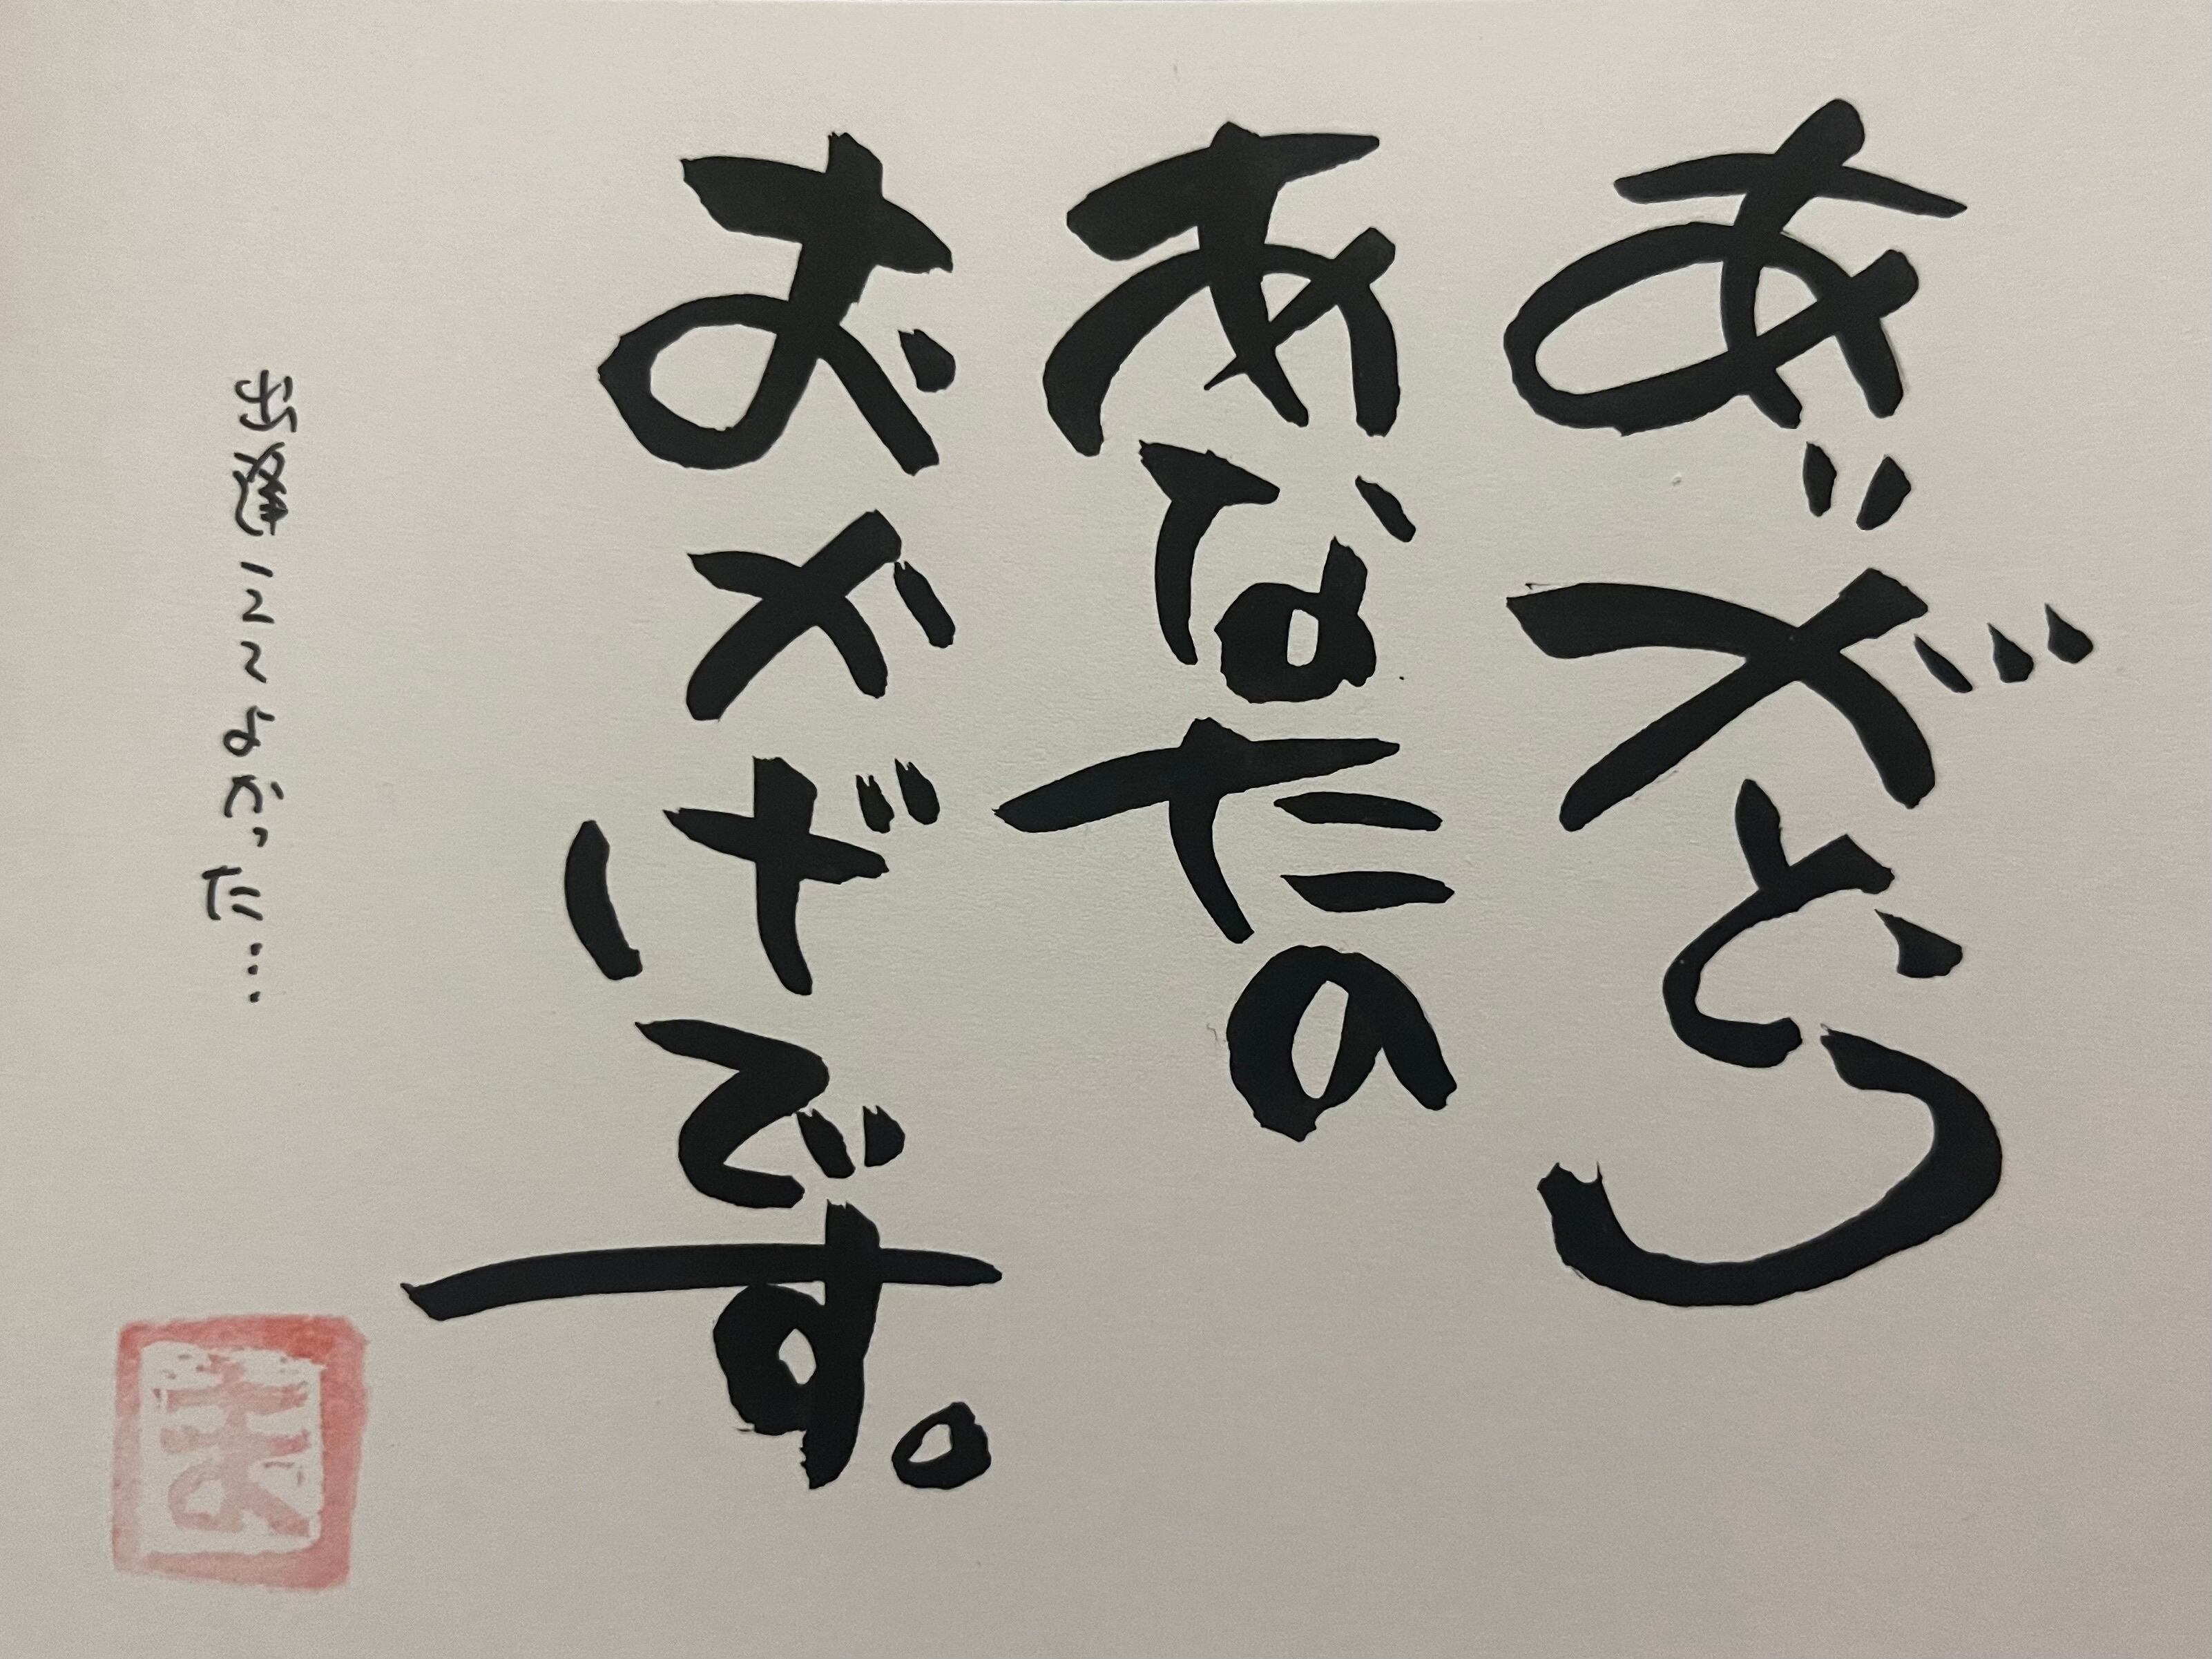 ありがとう
あなたの
おかげです。
出逢えてよかった…